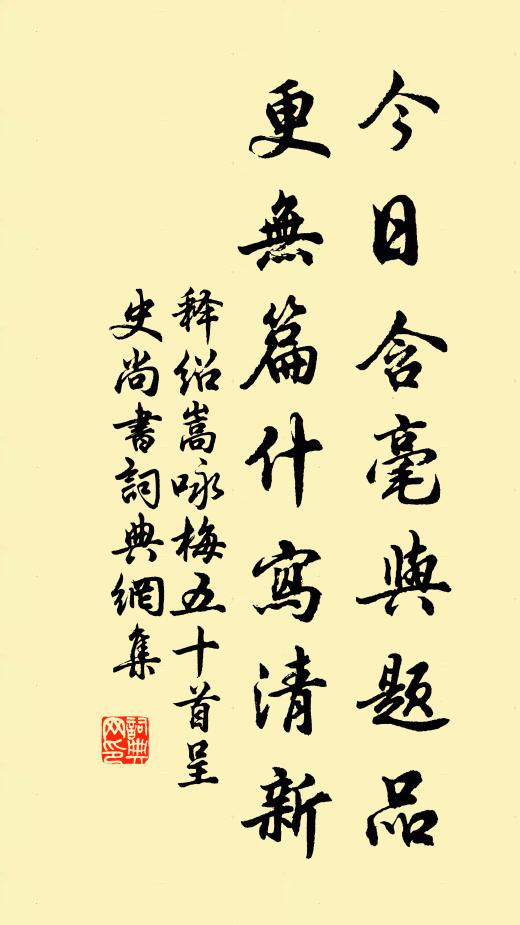 今日含毫與題品
更無篇什寫清新
释绍嵩咏梅五十首呈
史尚書詞典網集
詞典網印